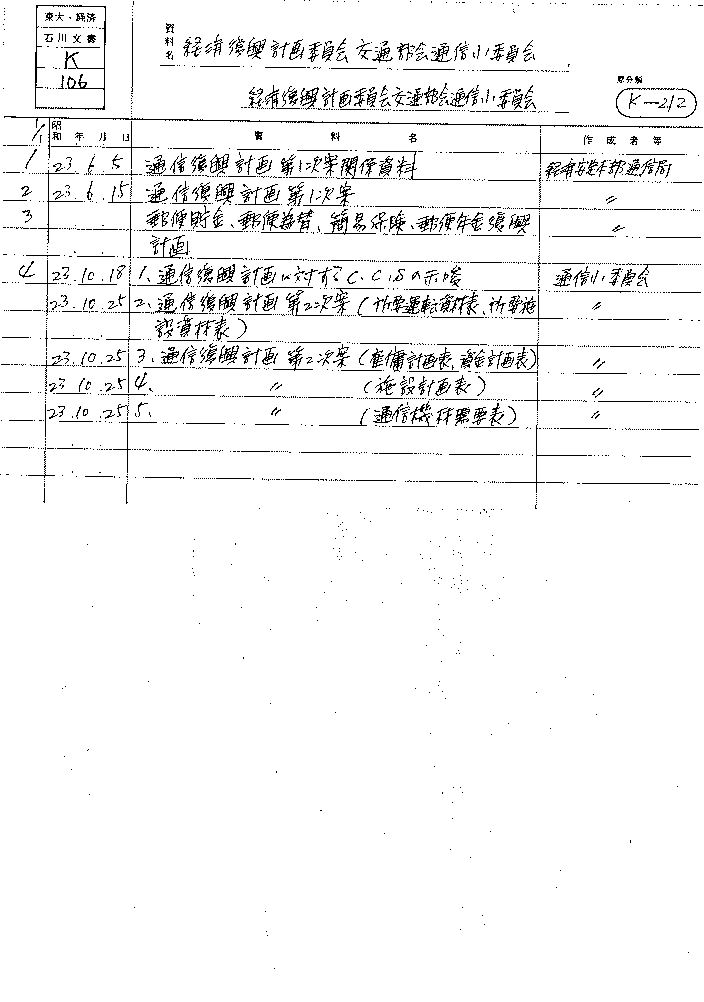 東大・経済
石川文書
K
106
資料名 経済復興計画委員会交通部会通信小委員会
経済復興計画委員会交通部会通信小委員会
原分類
K-212
1/1 昭和 年 月 日 資料名 作成者等
1 23.6.5 通信復興計画第1次案関係資料 経済安定本部通信局
2 23.6.15 通信復興計画第1次案 〃
3 郵便貯金、郵便為替、簡易保険、郵便年金復興 〃
計画
4 23.10.18 1、通信復興計画に対するC.C.Sの示唆 通信小委員会
23.10.25 2、通信復興計画第2次案(所要運転資材表、所要施 〃
設資材表)
23.10.25 3、通信復興計画第2次案(雇傭計画表、資金計画表) 〃
23.10.25 4、 〃 (施設計画表) 〃
23.10.25 5、 〃 (通信機材需要表) 〃